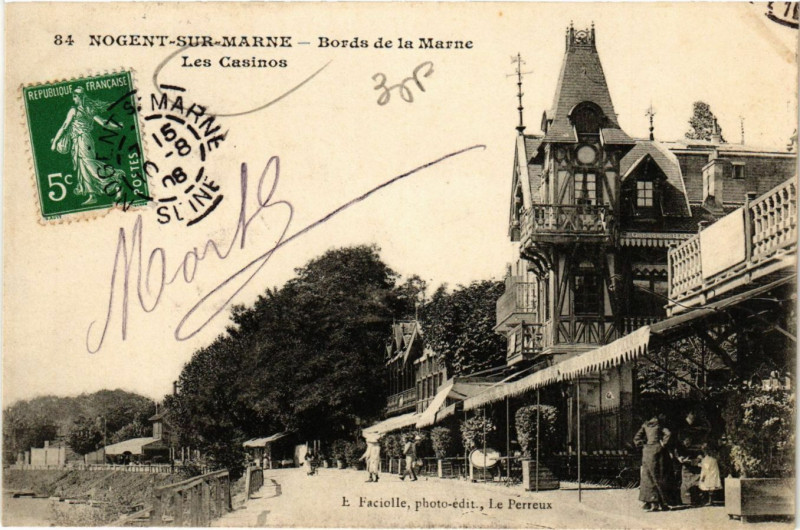 84 NOGENT-SUR-MARNE — Bords de la Marne
Les Casinos
REPUBLIQUE FRANÇAISE
5c
POSTES
NOGENT S. MARNE
15-8
08
SEINE
E. Faciolle, photo-édit., Le Perreux